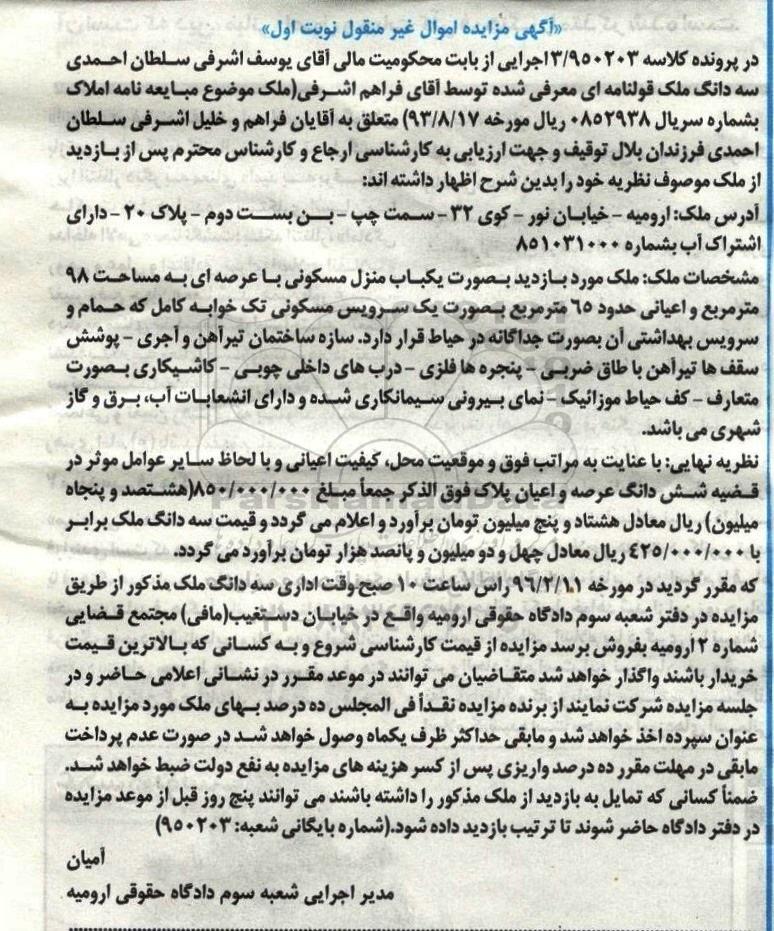 «آگهی مزایده اموال غیر منقول نوبت اول»
در پرونده کلاسه ۳/۹۵۰۲۰۳اجرایی از بابت محکومیت مالی آقای یوسف اشرفی سلطان احمدی
سه دانگ ملک قولنامه ای معرفی شده توسط آقای فراهم اشرفی(ملک موضوع مبایعه نامه املاک
بشماره سریال ۰۸۵۲۹۳۸ ریال مورخه ۹۳/۸/۱۷) متعلق به آقایان فراهم و خلیل اشرفی سلطان
احمدی فرزندان بلال توقیف و جهت ارزیابی به کارشناسی ارجاع و کارشناس محترم پس از بازدید
از ملک موصوف نظریه خود را بدین شرح اظهار داشته اند:
آدرس ملک: ارومیه - خیابان نور - کوی ۳۲ - سمت چپ - بن بست دوم - پلاک ۲۰ - دارای
اشتراک آب بشماره ۸۵۱۰۳۱۰۰۰
مشخصات ملک: ملک مورد بازدید بصورت یکباب منزل مسکونی با عرصه ای به مساحت ۹۸
مترمربع و اعیانی حدود ۶۵ مترمربع بصورت یک سرویس مسکونی تک خوابه کامل که حمام و
سرویس بهداشتی آن بصورت جداگانه در حیاط قرار دارد. سازه ساختمان تیرآهن و آجری - پوشش
سقف ها تیرآهن با طاق ضربی - پنجره ها فلزی - درب های داخلی چوبی - کاشیکاری بصورت
متعارف - کف حیاط موزائیک - نمای بیرونی سیمانکاری شده و دارای انشعابات آب، برق و گاز
شهری می باشد.
نظریه نهایی: با عنایت به مراتب فوق و موقعیت محل، کیفیت اعیانی و با لحاظ سایر عوامل موثر در
قضیه شش دانگ عرصه و اعیان پلاک فوق الذکر جمعاً مبلغ ۸۵۰/۰۰۰/۰۰۰(هشتصد و پنجاه
میلیون) ریال معادل هشتاد و پنج میلیون تومان برآورد و اعلام می گردد و قیمت سه دانگ ملک برابر
با ۴۲۵/۰۰۰/۰۰۰ ریال معادل چهل و دو میلیون و پانصد هزار تومان برآورد می گردد.
که مقرر گردید در مورخه ۹۶/۲/۱۱ راس ساعت ۱۰ صبح وقت اداری سه دانگ ملک مذکور از طریق
مزایده در دفتر شعبه سوم دادگاه حقوقی ارومیه واقع در خیابان دستغیب(مافی) مجتمع قضایی
شماره ۲ ارومیه بفروش برسد مزایده از قیمت کارشناسی شروع و به کسانی که بالاترین قیمت
خریدار باشند واگذار خواهد شد متقاضیان می توانند در موعد مقرر در نشانی اعلامی حاضر و در
جلسه مزایده شرکت نمایند از برنده مزایده نقداً فی المجلس ده درصد بهای ملک مورد مزایده به
عنوان سپرده اخذ خواهد شد و مابقی حداکثر ظرف یکماه وصول خواهد شد در صورت عدم پرداخت
مابقی در مهلت مقرر ده درصد واریزی پس از کسر هزینه های مزایده به نفع دولت ضبط خواهد شد.
ضمناً کسانی که تمایل به بازدید از ملک مذکور را داشته باشند می توانند پنج روز قبل از موعد مزایده
در دفتر دادگاه حاضر شوند تا ترتیب بازدید داده شود.(شماره بایگانی شعبه: ۹۵۰۲۰۳)
آمیان
مدیر اجرایی شعبه سوم دادگاه حقوقی ارومیه